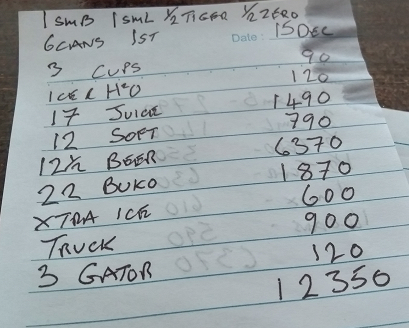 1 SMB 1 SML 1/2 TIGER 1/2 ZERO
6 CANS 1ST Date: 15 DEC
3 CUPS 90
ICE & H2O 120
17 JUICE 1490
12 SOFT 790
12 1/2 BEER 6370
22 BUKO 1870
XTRA ICE 600
TRUCK 900
3 GATOR 120
12350